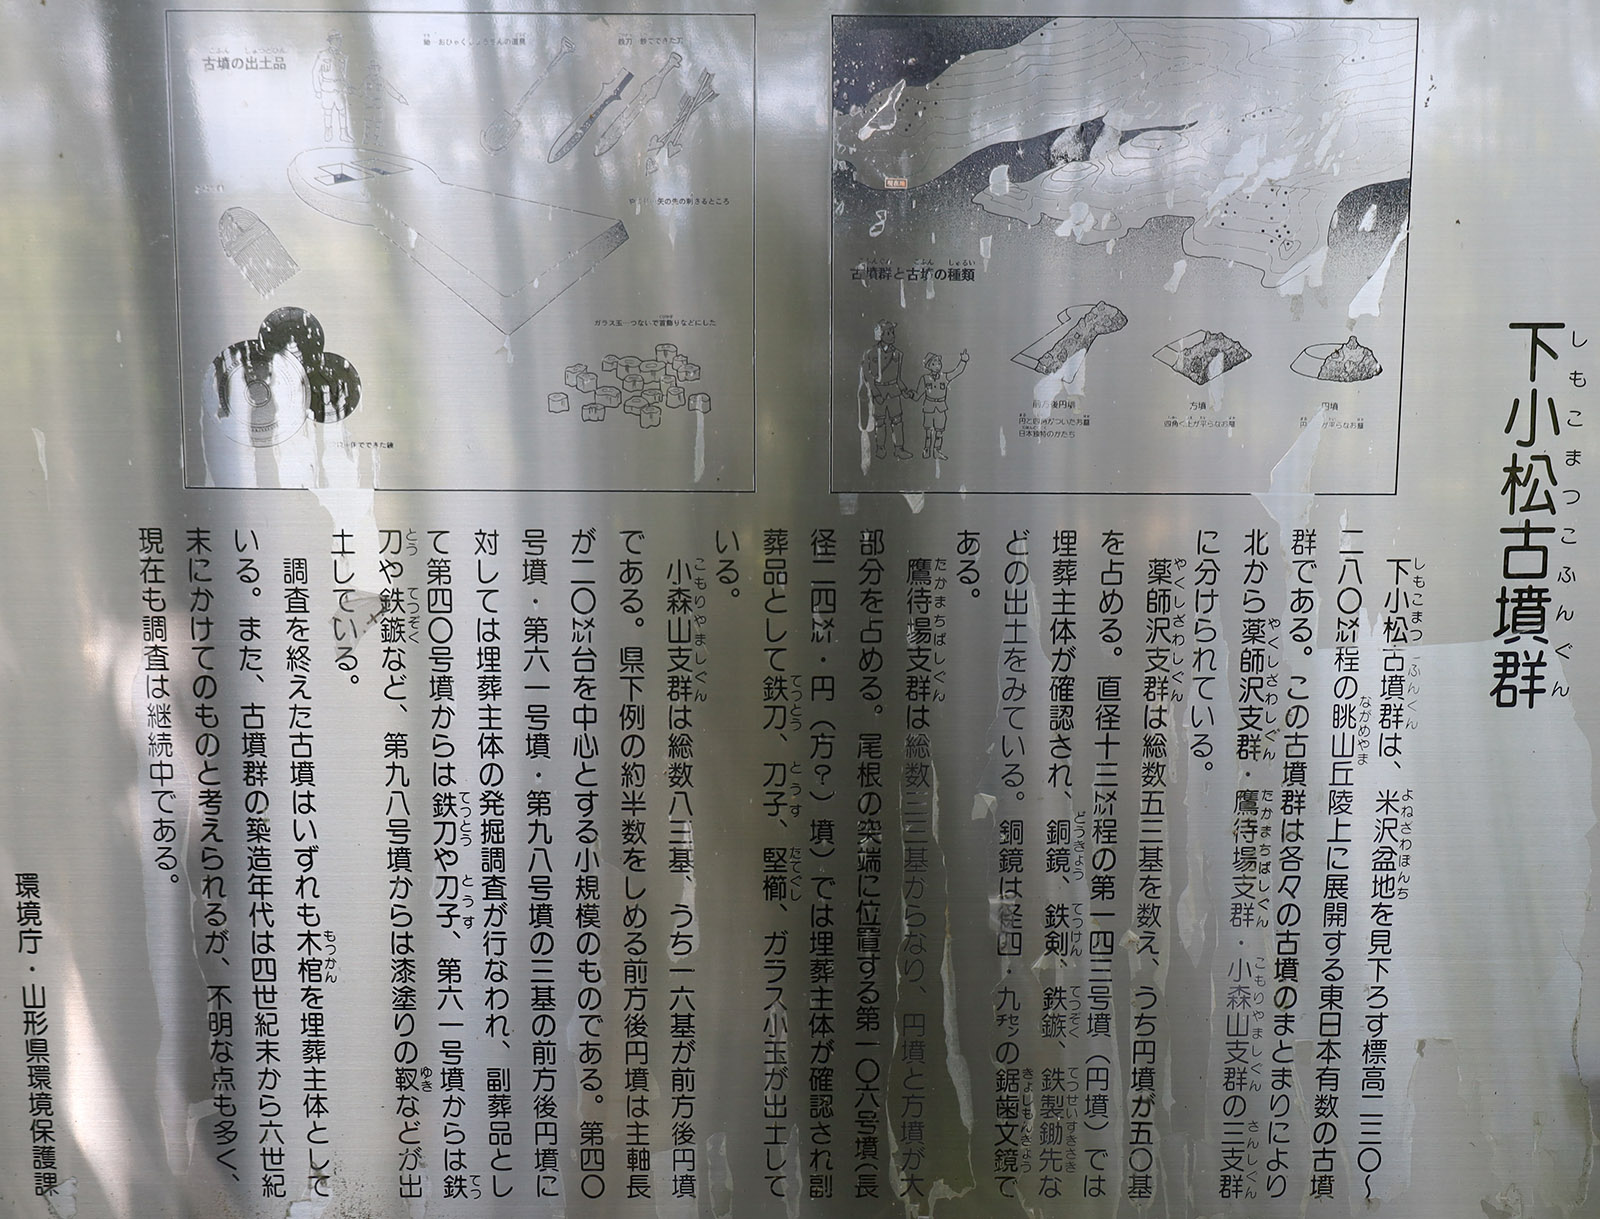 下小松古墳群
しもこまつこふんぐん
下小松古墳群は、米沢盆地を見下ろす標高二三〇〜
二八〇㍍程の眺山丘陵上に展開する東日本有数の古墳
群である。この古墳群は各々の古墳のまとまりにより
北から薬師沢支群・鷹待場支群・小森山支群の三支群
に分けられている。
薬師沢支群は総数五三基を数え、うち円墳が五〇基
を占める。直径十三㍍程の第一四三号墳（円墳）では
埋葬主体が確認され、銅鏡、鉄剣、鉄鏃、鉄製鋤先な
どの出土をみている。銅鏡は径四・九㌢の鋸歯文鏡で
ある。
鷹待場支群は総数三三基からなり、円墳と方墳が大
部分を占める。尾根の突端に位置する第一〇六号墳（長
径二四㍍・円（方？）墳）では埋葬主体が確認され副
葬品として鉄刀、刀子、堅櫛、ガラス小玉が出土して
いる。
小森山支群は総数八三基、うち一六基が前方後円墳
である。県下例の約半数をしめる前方後円墳は主軸長
が二〇㍍台を中心とする小規模のものである。第四〇
号墳・第六一号墳・第九八号墳の三基の前方後円墳に
対しては埋葬主体の発掘調査が行なわれ、副葬品とし
て第四〇号墳からは鉄刀や刀子、第六一号墳からは鉄
刀や鉄鏃など、第九八号墳からは漆塗りの靫などが出
土している。
調査を終えた古墳はいずれも木棺を埋葬主体として
いる。また、古墳群の築造年代は四世紀末から六世紀
末にかけてのものと考えられるが、不明な点も多く、
現在も調査は継続中である。
環境庁・山形県環境保護課
現在地
古墳群と古墳の種類
前方後円墳
日本独特のかたち
方墳
四角く上が平らなお墓
円墳
古墳の出土品
こふん しゅつどひん
鉄刀…鉄でできた刀
矢の先の刺さるところ
ガラス玉…つないで首飾りなどにした